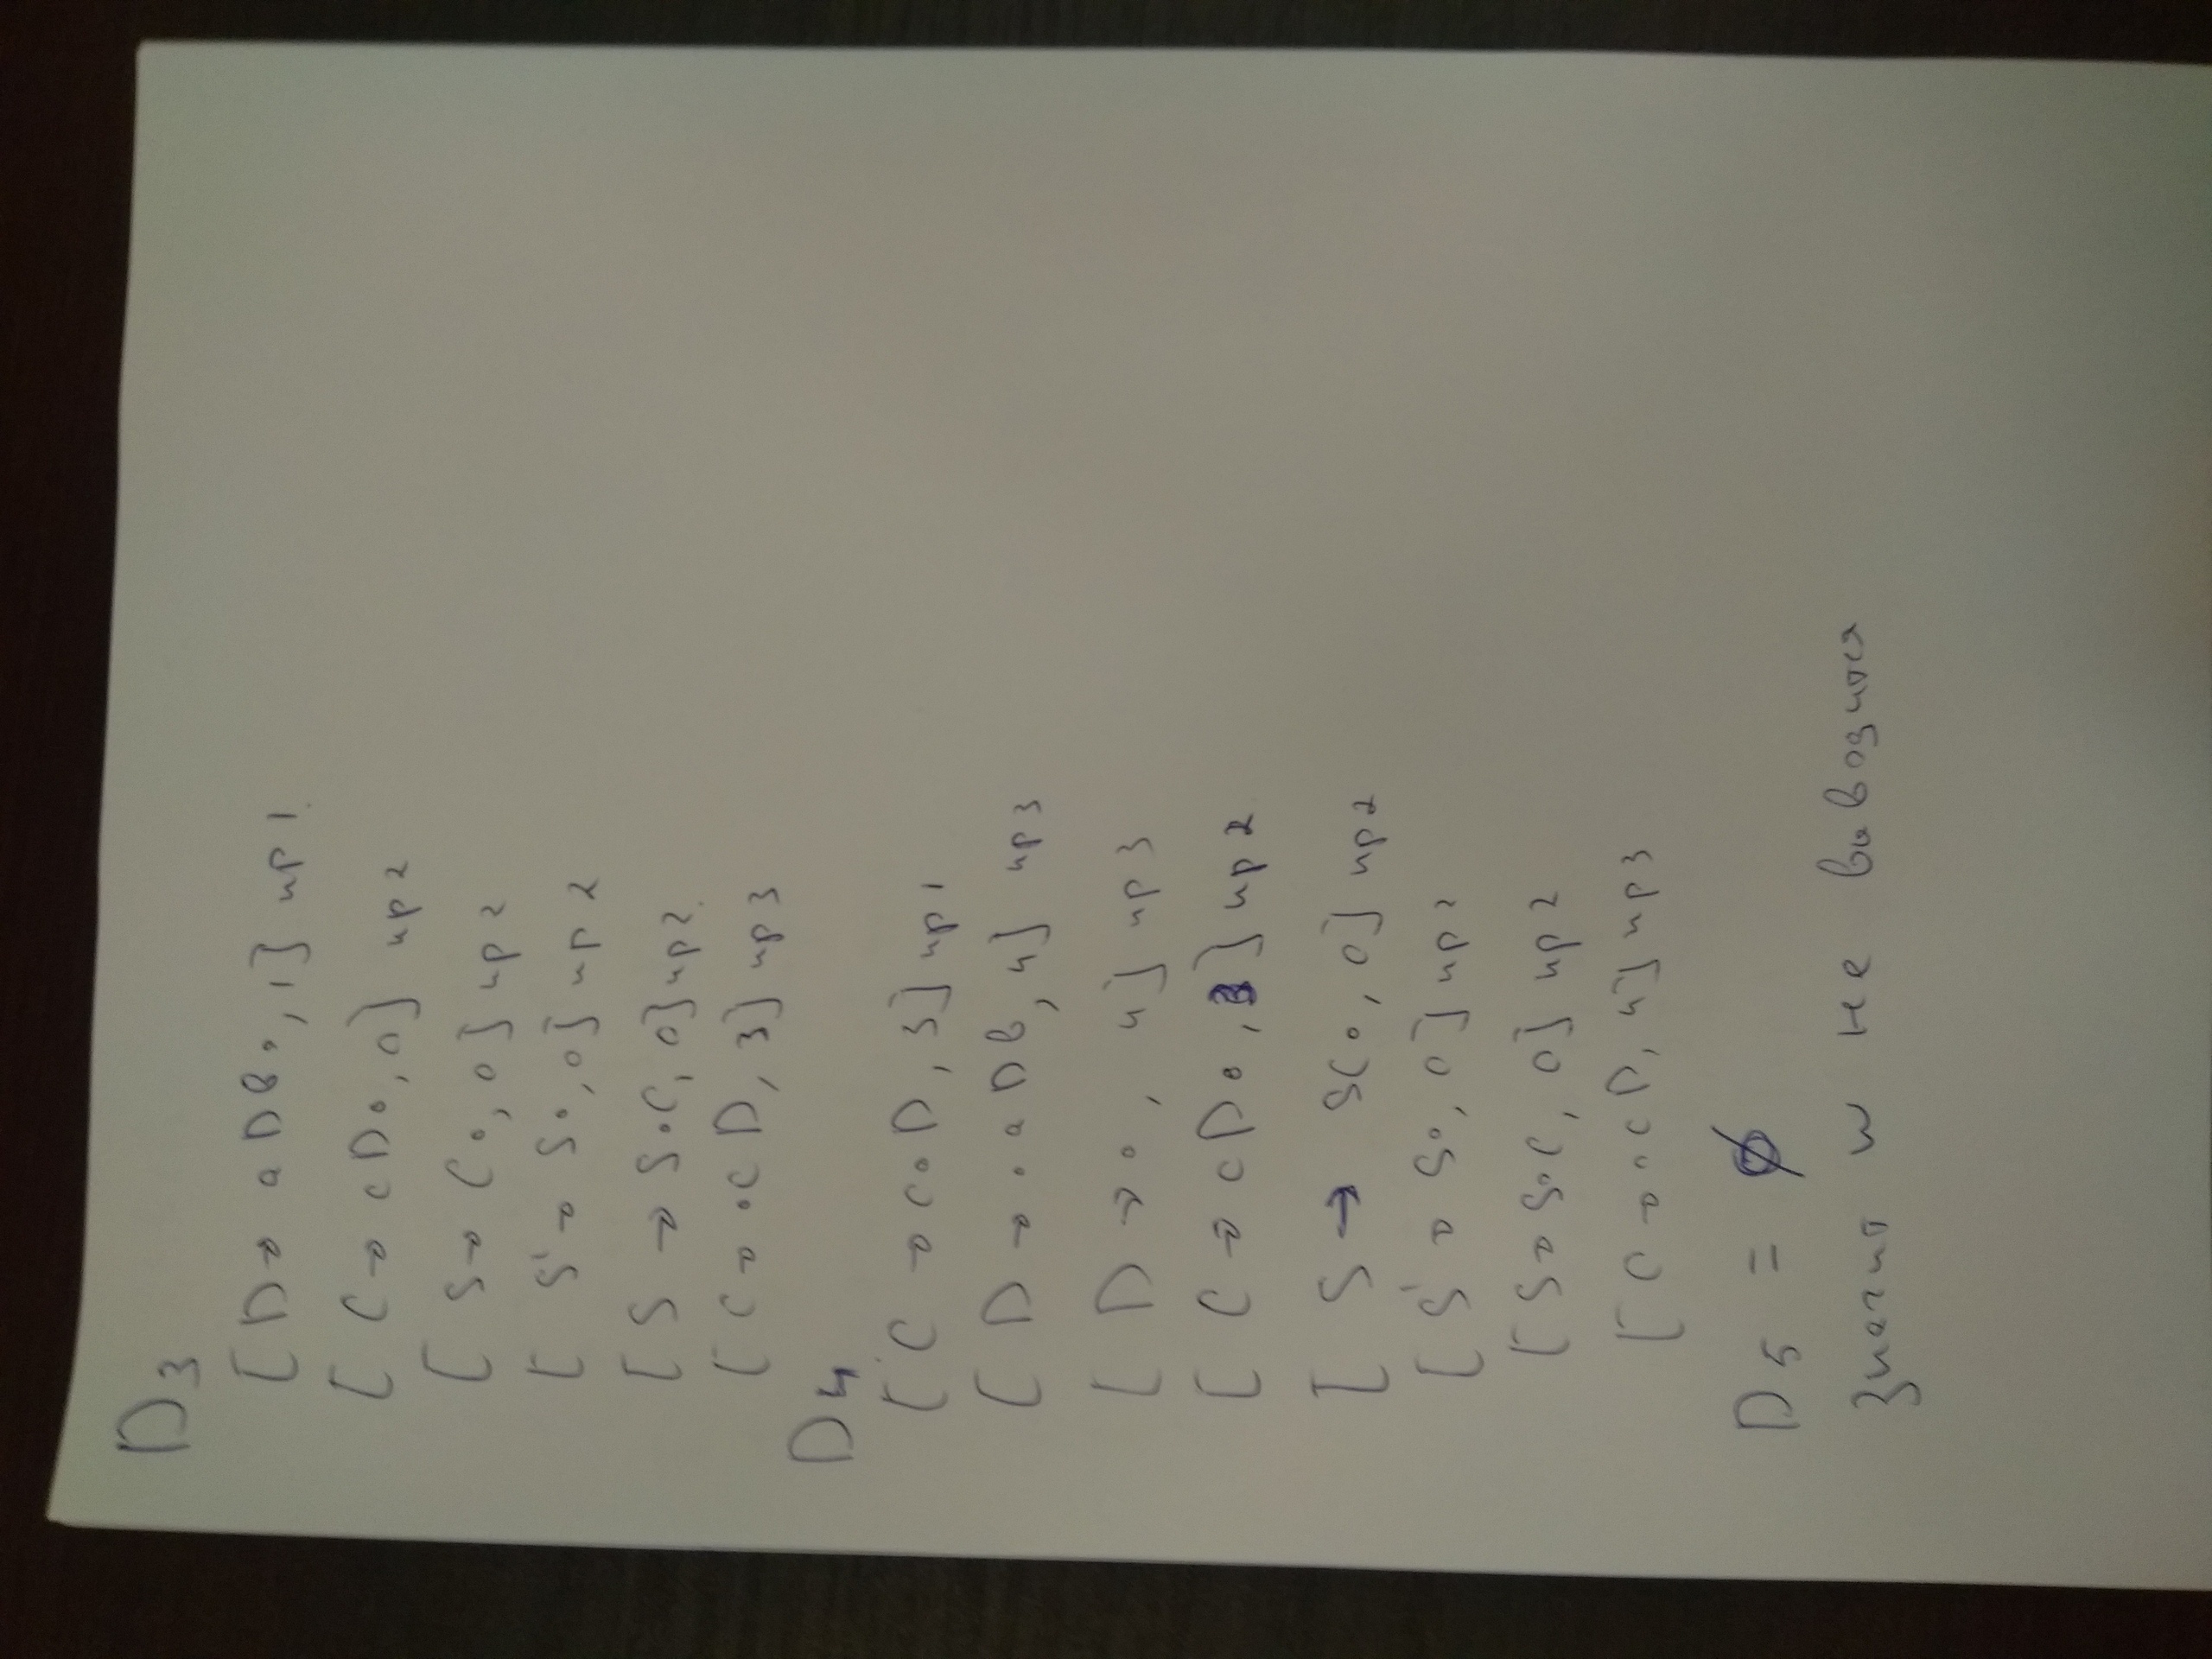 D3
[D → aDb∘, 1] пр1.
[C → cD∘, 0] пр2
[S → C∘, 0] пр2
[S' → S∘, 0] пр2
[S → S∘C, 0] пр2.
[C → ∘cD, 3] пр3
D4
[C → c∘D, 3] пр1
[D → ∘aDb, 4] пр3
[D → ∘, 4] пр3
[C → cD∘, 3] пр2
[S → SC∘, 0] пр2
[S' → S∘, 0] пр2
[S → S∘C, 0] пр2
[C → ∘cD, 4] пр3
D5 = ∅
Значит w не выводится